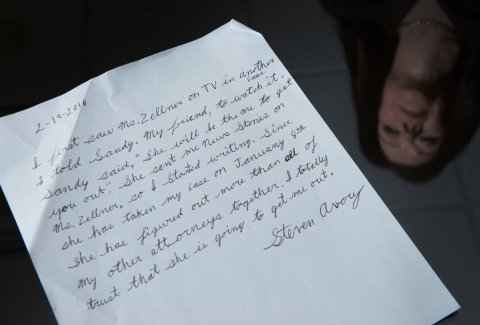 2-19-2016
I first saw Ms. Zellner on TV in another
case.
I told Sandy, My friend, to watch it.
Sandy said, "She will be the one to get
you out." She sent me News Stories on
Ms. Zellner, so I Started writing. Since
she has taken my case on January 8th
She has figured out more than all of
my other attorneys together. I totally
trust that she is going to get me out.
Steven Avery